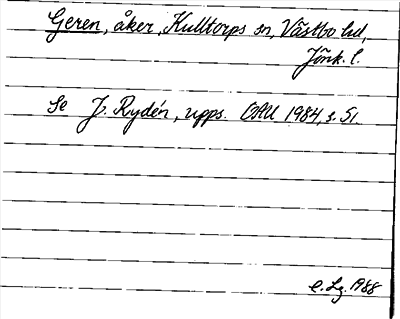 Geren, åker, Kulltorps sn, Västbo hd,
Jönk. l.
Se J. Rydén, upps. OAU 1984, s. 51.
e. Lg. 1988